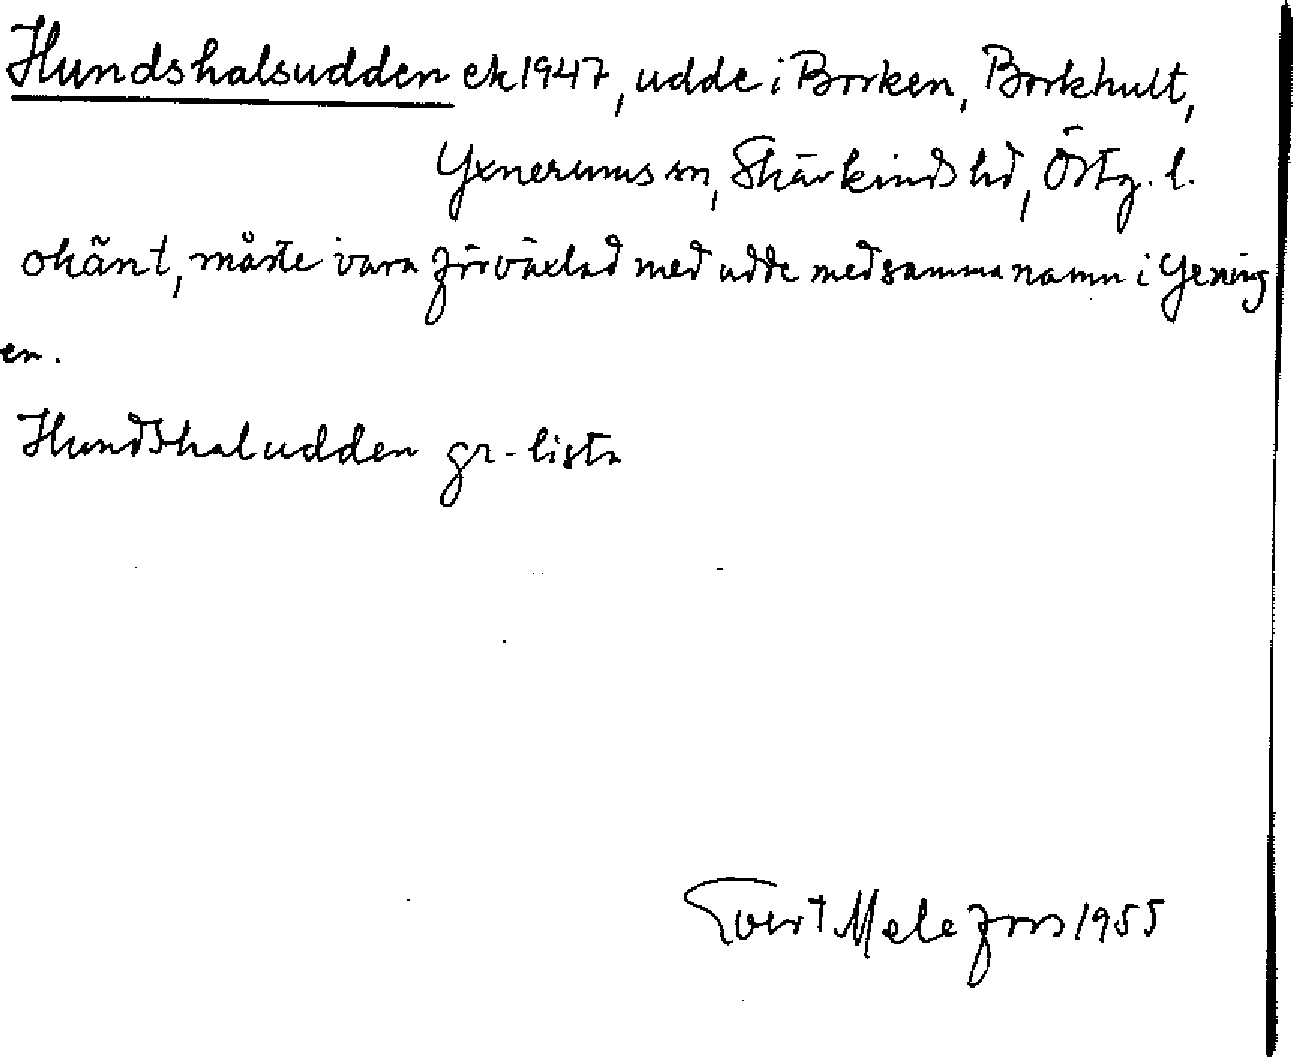 Hundshalsudden ek 1947, udde i Borken, Borkhult,
Yxnerums sn, Skärkinds hd, Östg. l.
okänt, måste vara förväxlad med udde med samma namn i Yxning
en.
Hundshaludden gr-lista
Evert Melefors 1955